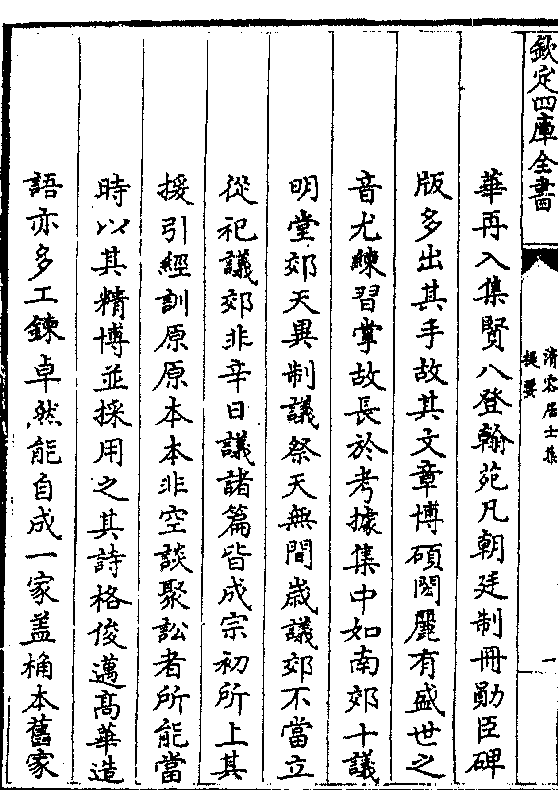 欽定四庫全書
清容居士集
提要
一
華再入集賢八登翰苑凡朝廷制冊勛臣碑
版多出其手故其文章博碩閎麗有盛世之
音尤練習掌故長於考據集中如南郊十議
明堂郊天異制議祭天無間歲議郊不當立
從祀議郊非辛日議諸篇皆成宗初所上其
援引經訓原原本本非空談聚訟者所能當
時以其精博並採用之其詩格俊邁高華造
語亦多工鍊卓然能自成一家蓋桷本舊家